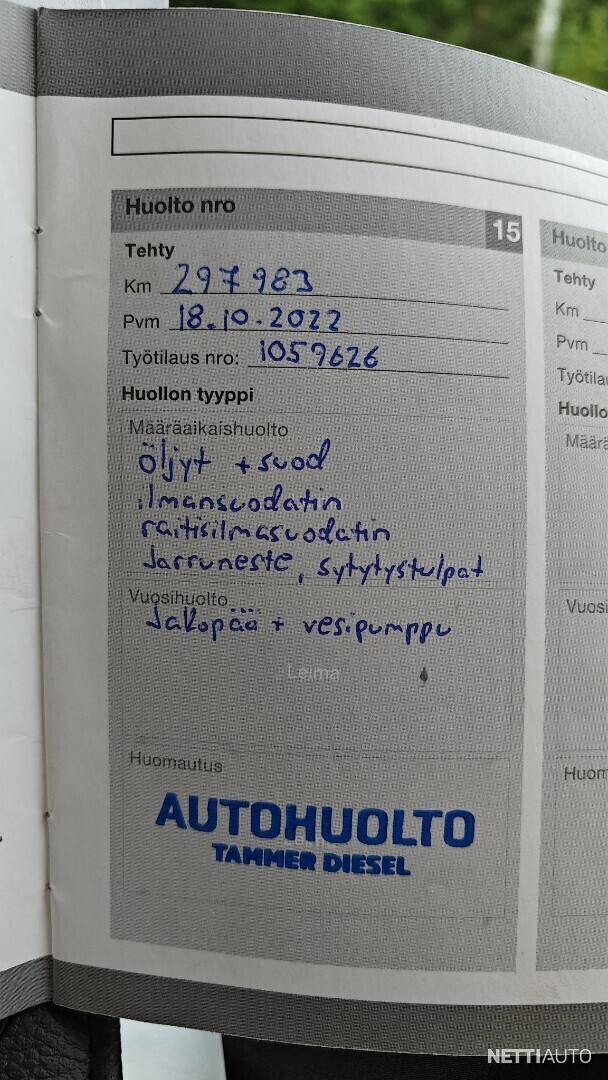 Huolto nro
15
Tehty
Km 297 983
Pvm 18.10.2022
Työtilaus nro: 1059626
Huollon tyyppi
Määräaikaishuolto
öljyt + suod
ilmansuodatin
raitisilmasuodatin
Jarruneste, sytytystulpat
Vuosihuolto
Jakopää + vesipumppu
Leima
Huomautus
AUTOHUOLTO
TAMMER DIESEL
Huolto
Tehty
Km
Pvm
Työtila
Huollo
Määrä
Vuosi
Huom
NETTIAUTO